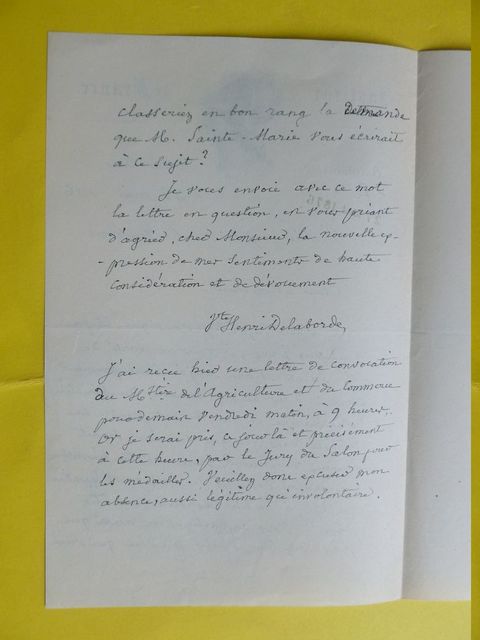 classeriez en bon rang la Demande
que M. Sainte-Marie vous écrirait
à ce sujet?
Je vous envoie avec ce mot
la lettre en question, en vous priant
d'agréer, cher Monsieur, la nouvelle ex-
-pression de mes sentiments de haute
considération et de dévouement
Vte Henri Delaborde,
J'ai reçu hier une lettre de convocation
du Mtère de l'Agriculture et du Commerce
pour demain vendredi matin, à 9 heures.
Or je serai pris, ce jour là et précisément
à cette heure, par le Jury du Salon pour
les médailles. Veuillez donc excuser mon
absence, aussi légitime qu'involontaire.